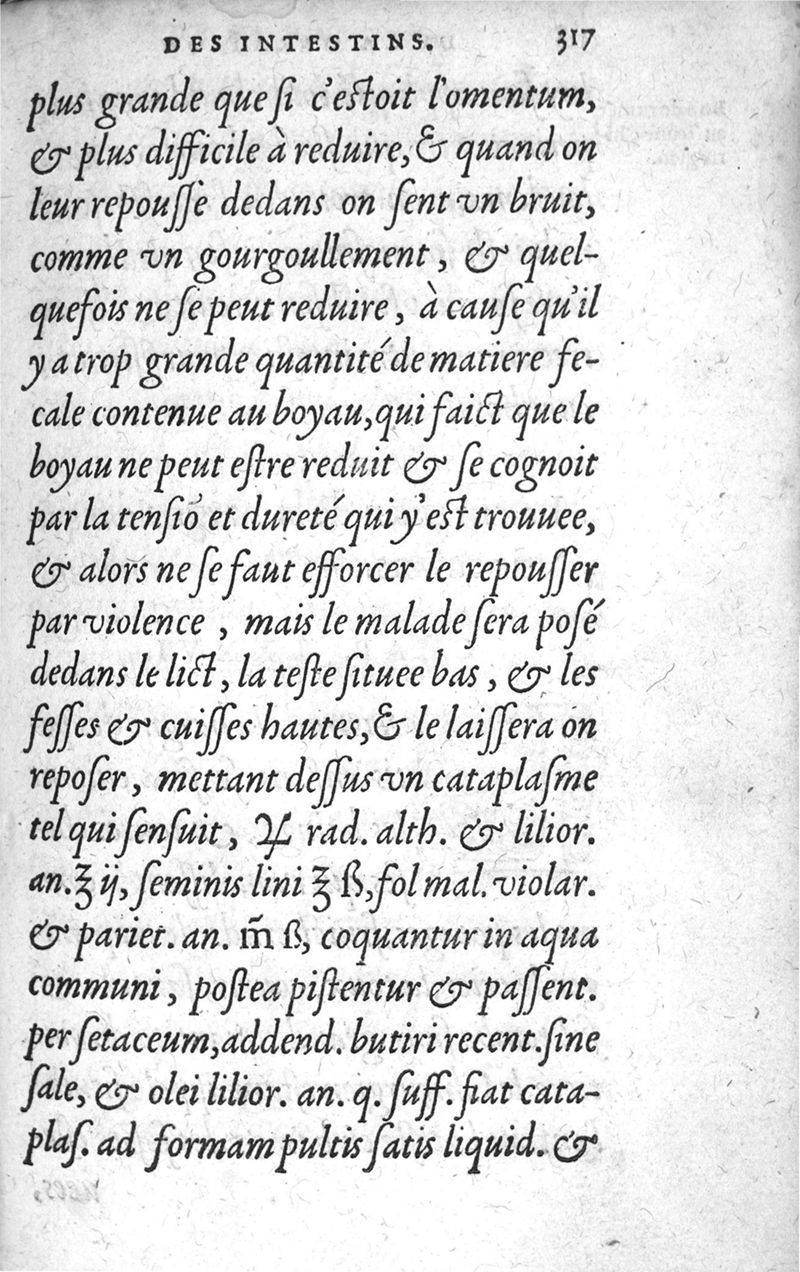 DES INTESTINS. 317
plus grande que ſi c'eſtoit l'omentum,
& plus difficile à reduire, & quand on
leur repouſſe dedans on ſent vn bruit,
comme vn gourgoullement, & quel-
quefois ne ſe peut reduire, à cauſe qu'il
y a trop grande quantité de matiere fe-
cale contenue au boyau, qui faict que le
boyau ne peut eſtre reduit & ſe cognoit
par la tenſiō et dureté qui y'eſt trouuee,
& alors ne ſe faut efforcer le repouſſer
par violence, mais le malade ſera poſé
dedans le lict, la teſte ſituee bas, & les
feſſes & cuiſſes hautes, & le laiſſera on
repoſer, mettant deſſus vn cataplaſme
tel qui ſenſuit, ♃ rad. alth. & lilior.
an. ʒ ij, ſeminis lini ʒ ß, fol mal. violar.
& pariet. an. m̃ ß, coquantur in aqua
communi, poſtea piſtentur & paſſent.
per ſetaceum, addend. butiri recent. ſine
ſale, & olei lilior. an. q. ſuff. fiat cata-
plaſ. ad formam pultis ſatis liquid. &